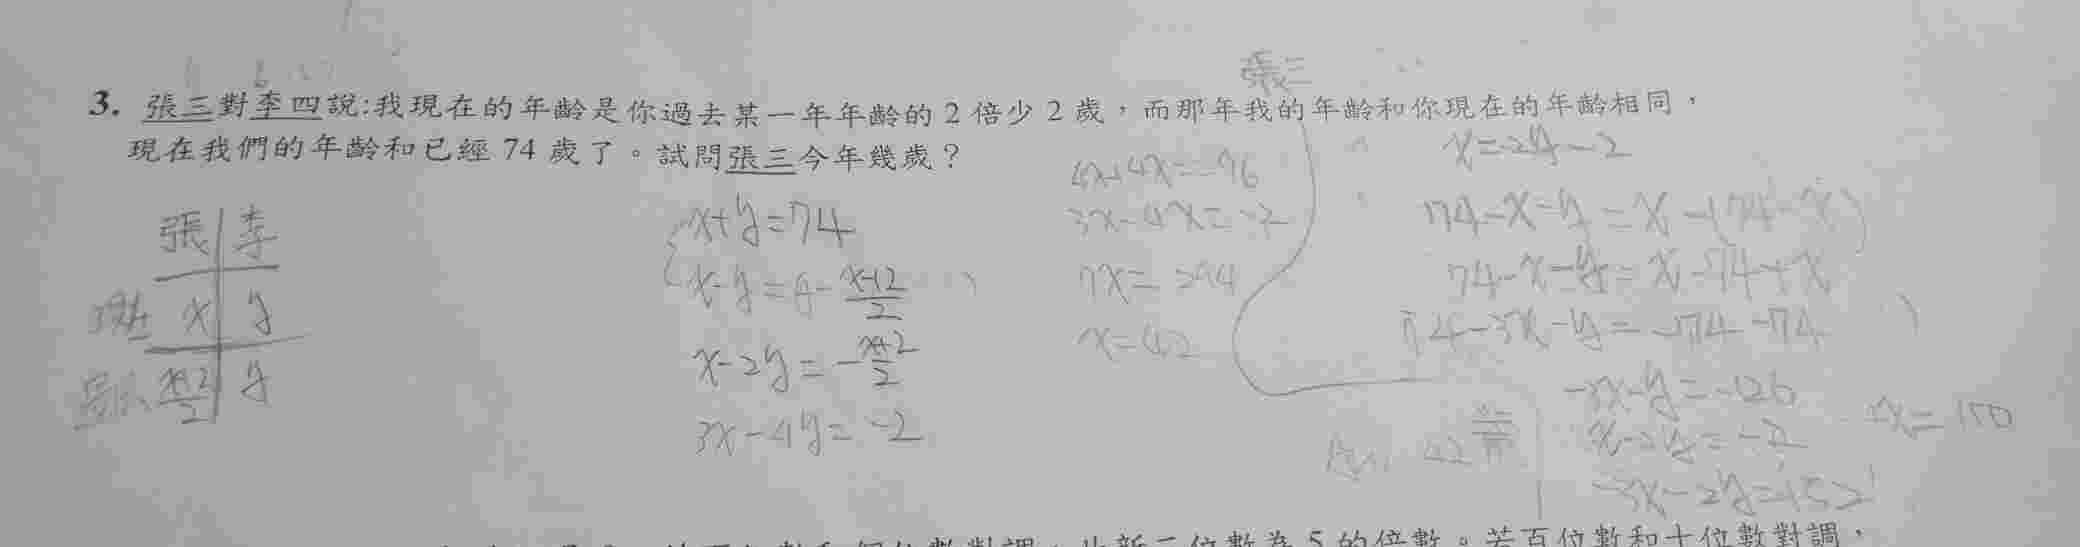 張三
3. 張三對李四說:我現在的年齡是你過去某一年年齡的 2 倍少 2 歲，而那年我的年齡和你現在的年齡相同，
現在我們的年齡和已經 74 歲了。試問張三今年幾歲？
張 李
現在 x y
x+2/2 y
x+y=74
x-y=y-x+2/2
x-2y=-x+2/2
3x-4y=-2
3x-4x=-2
7x=294
x=42
x=2y-2
74-x-y=x-(74-x)
74-x-y=x-74+x
-3x-y=-126
x-2y=-2